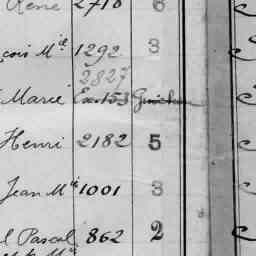 René 2718 6
çois Mie 1292 3
2827
Marie Ex 153
Henri 2182 5
Jean Mie 1001 3
l Pascal 862 2